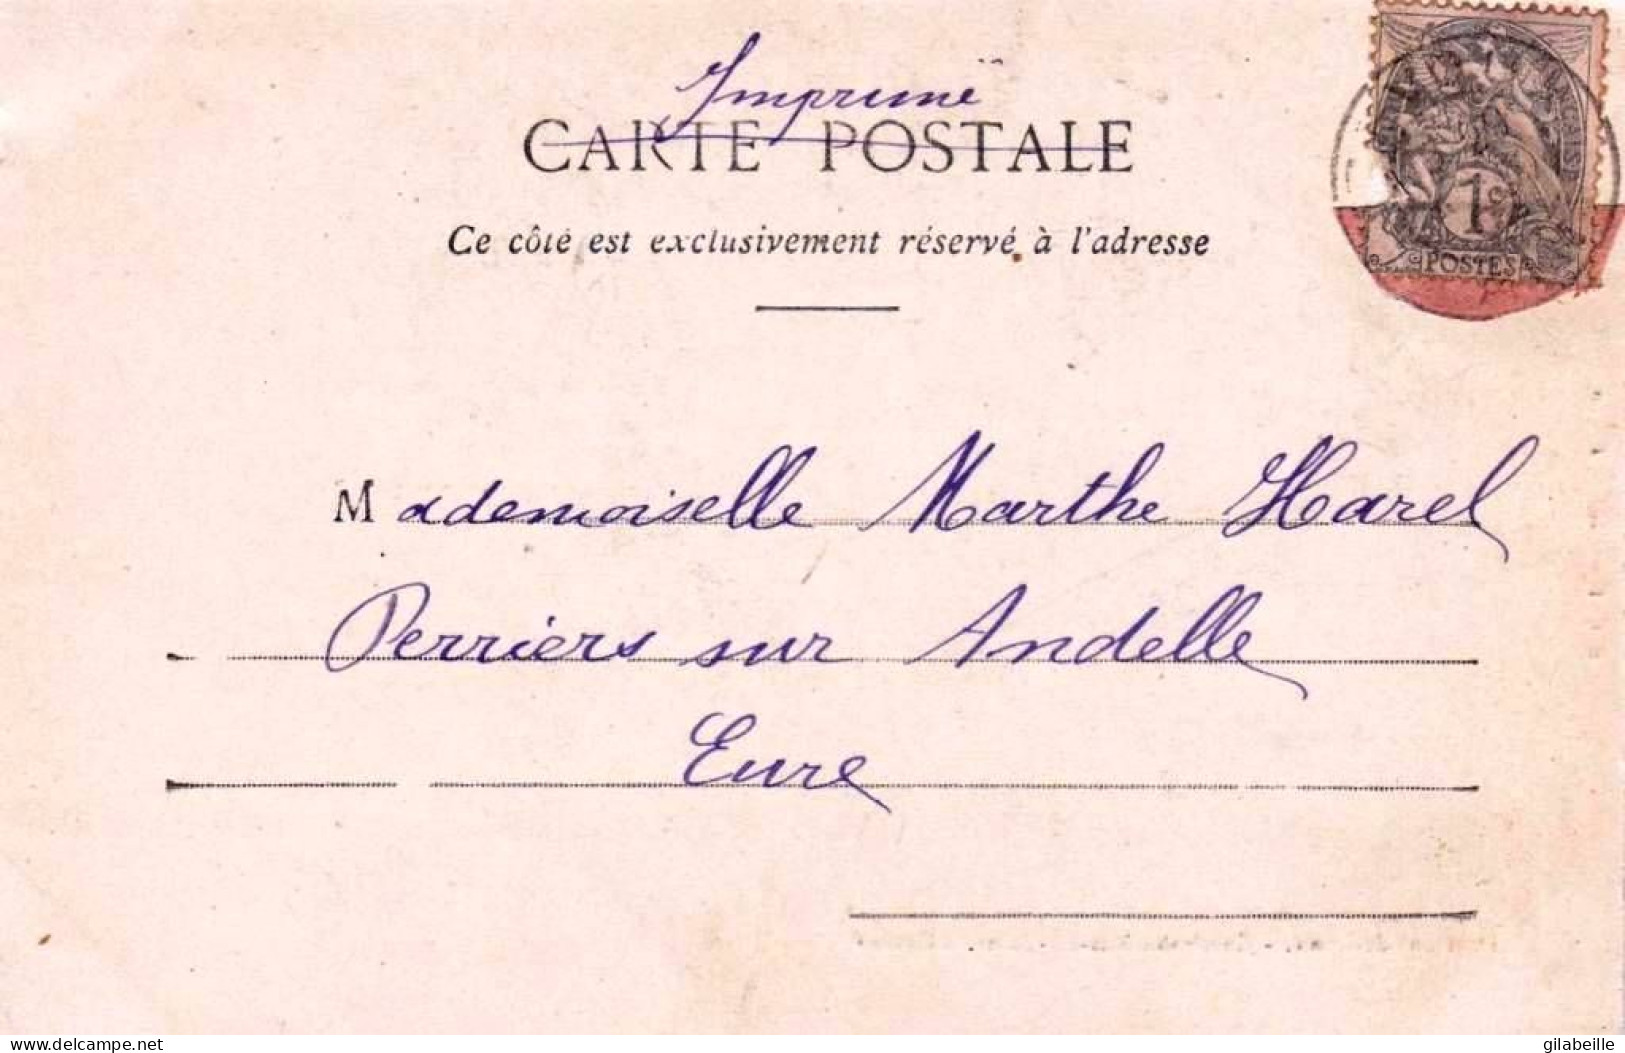 Imprimé
CARTE POSTALE
Ce côté est exclusivement réservé à l'adresse
1c
POSTES
Mademoiselle Marthe Harel
Perriers sur Andelle
Eure
www.delcampe.net
gilabeille